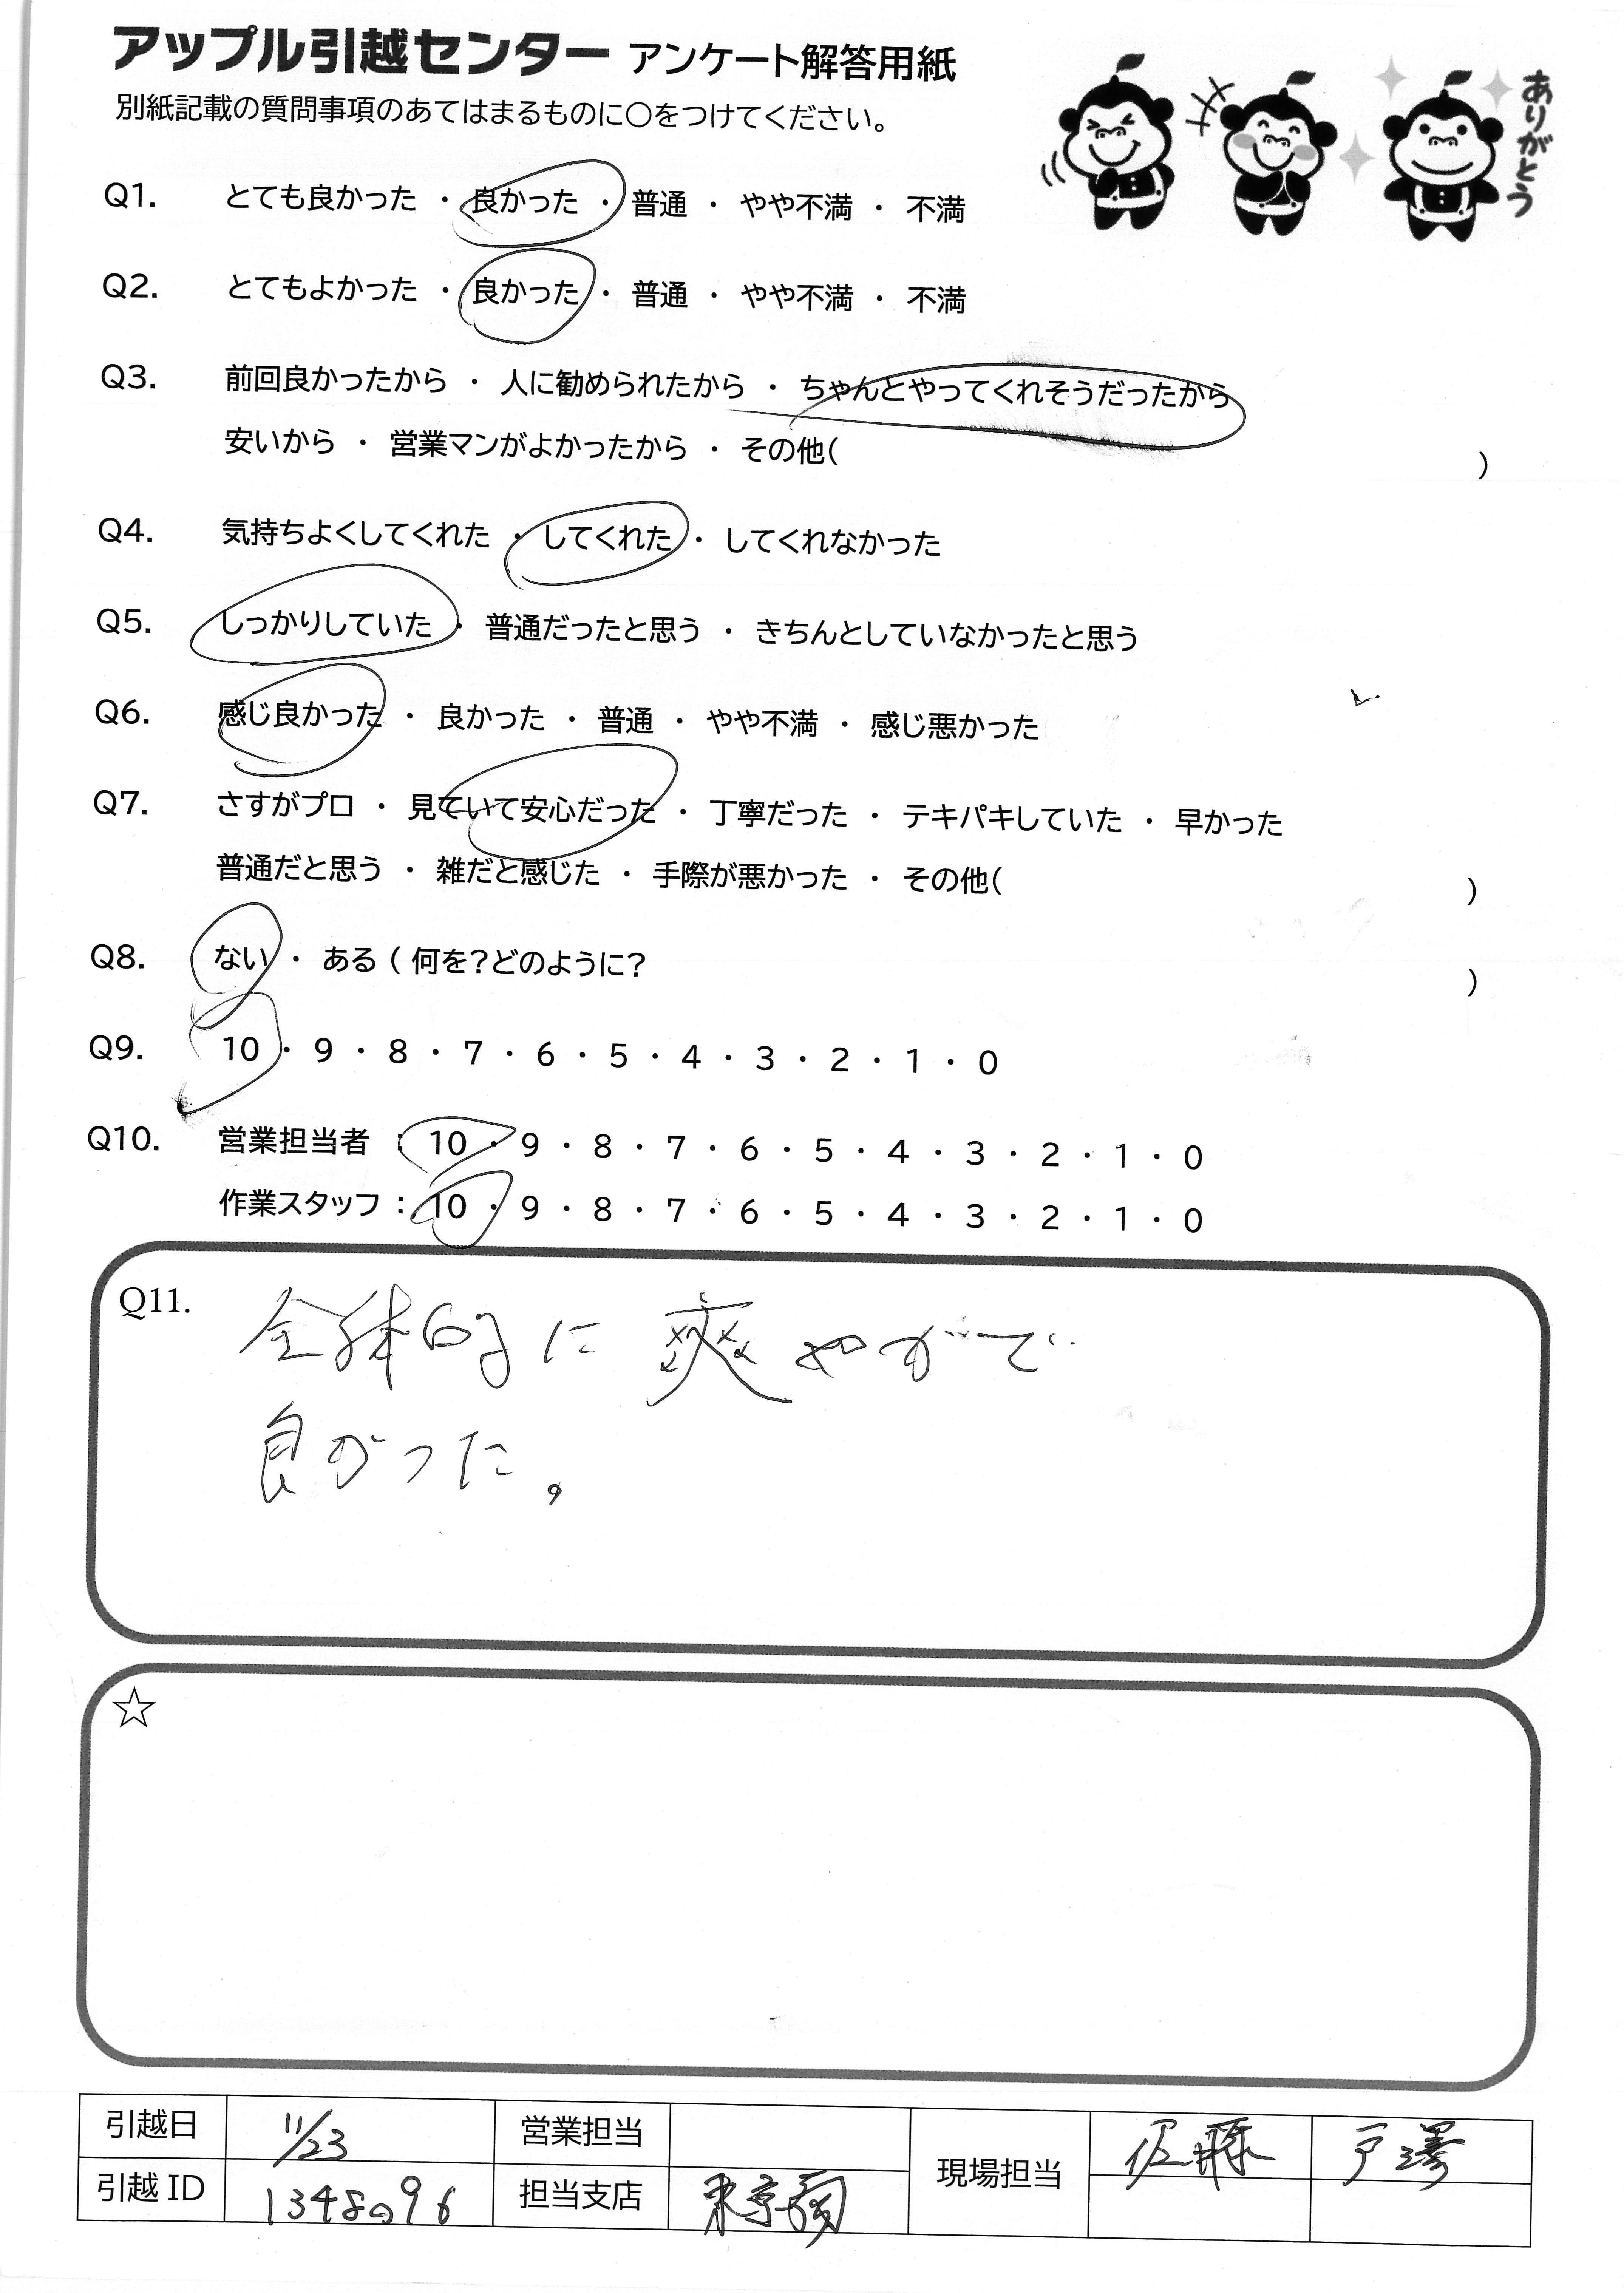 アップル引越センター アンケート解答用紙
別紙記載の質問事項のあてはまるものに○をつけてください。
ありがとう
Q1. とても良かった ・ 良かった ・ 普通 ・ やや不満 ・ 不満
Q2. とてもよかった ・ 良かった ・ 普通 ・ やや不満 ・ 不満
Q3. 前回良かったから ・ 人に勧められたから ・ ちゃんとやってくれそうだったから
安いから ・ 営業マンがよかったから ・ その他( )
Q4. 気持ちよくしてくれた ・ してくれた ・ してくれなかった
Q5. しっかりしていた ・ 普通だったと思う ・ きちんとしていなかったと思う
Q6. 感じ良かった ・ 良かった ・ 普通 ・ やや不満 ・ 感じ悪かった
Q7. さすがプロ ・ 見ていて安心だった ・ 丁寧だった ・ テキパキしていた ・ 早かった
普通だと思う ・ 雑だと感じた ・ 手際が悪かった ・ その他( )
Q8. ない ・ ある ( 何を?どのように? )
Q9. 10 ・ 9 ・ 8 ・ 7 ・ 6 ・ 5 ・ 4 ・ 3 ・ 2 ・ 1 ・ 0
Q10. 営業担当者 : 10 ・ 9 ・ 8 ・ 7 ・ 6 ・ 5 ・ 4 ・ 3 ・ 2 ・ 1 ・ 0
作業スタッフ : 10 ・ 9 ・ 8 ・ 7 ・ 6 ・ 5 ・ 4 ・ 3 ・ 2 ・ 1 ・ 0
Q11. 全体的に 爽やかで
良かった。
☆
引越日 11/23 営業担当 現場担当 佐藤 戸澤
引越 ID 1348096 担当支店 東京南